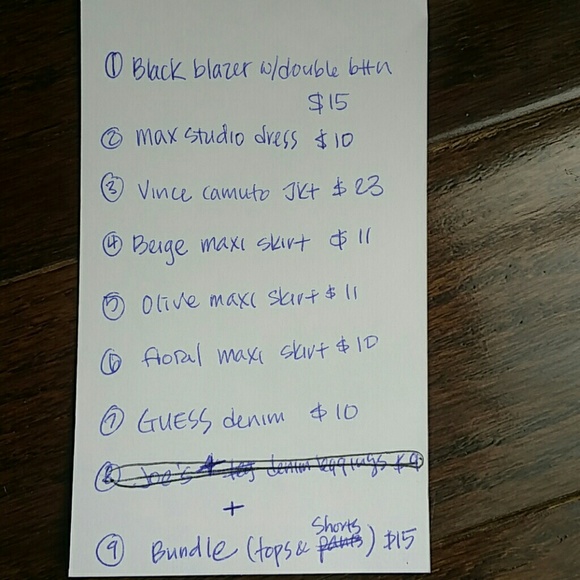 ① Black blazer w/double bttn
$15
② max studio dress $10
③ Vince camuto Jkt $23
④ Beige maxi skirt $11
⑤ Olive maxi skirt $11
⑥ floral maxi skirt $10
⑦ GUESS denim $10
⑧ Joe's denim leggings $9
+
shorts
⑨ Bundle (tops & pants) $15